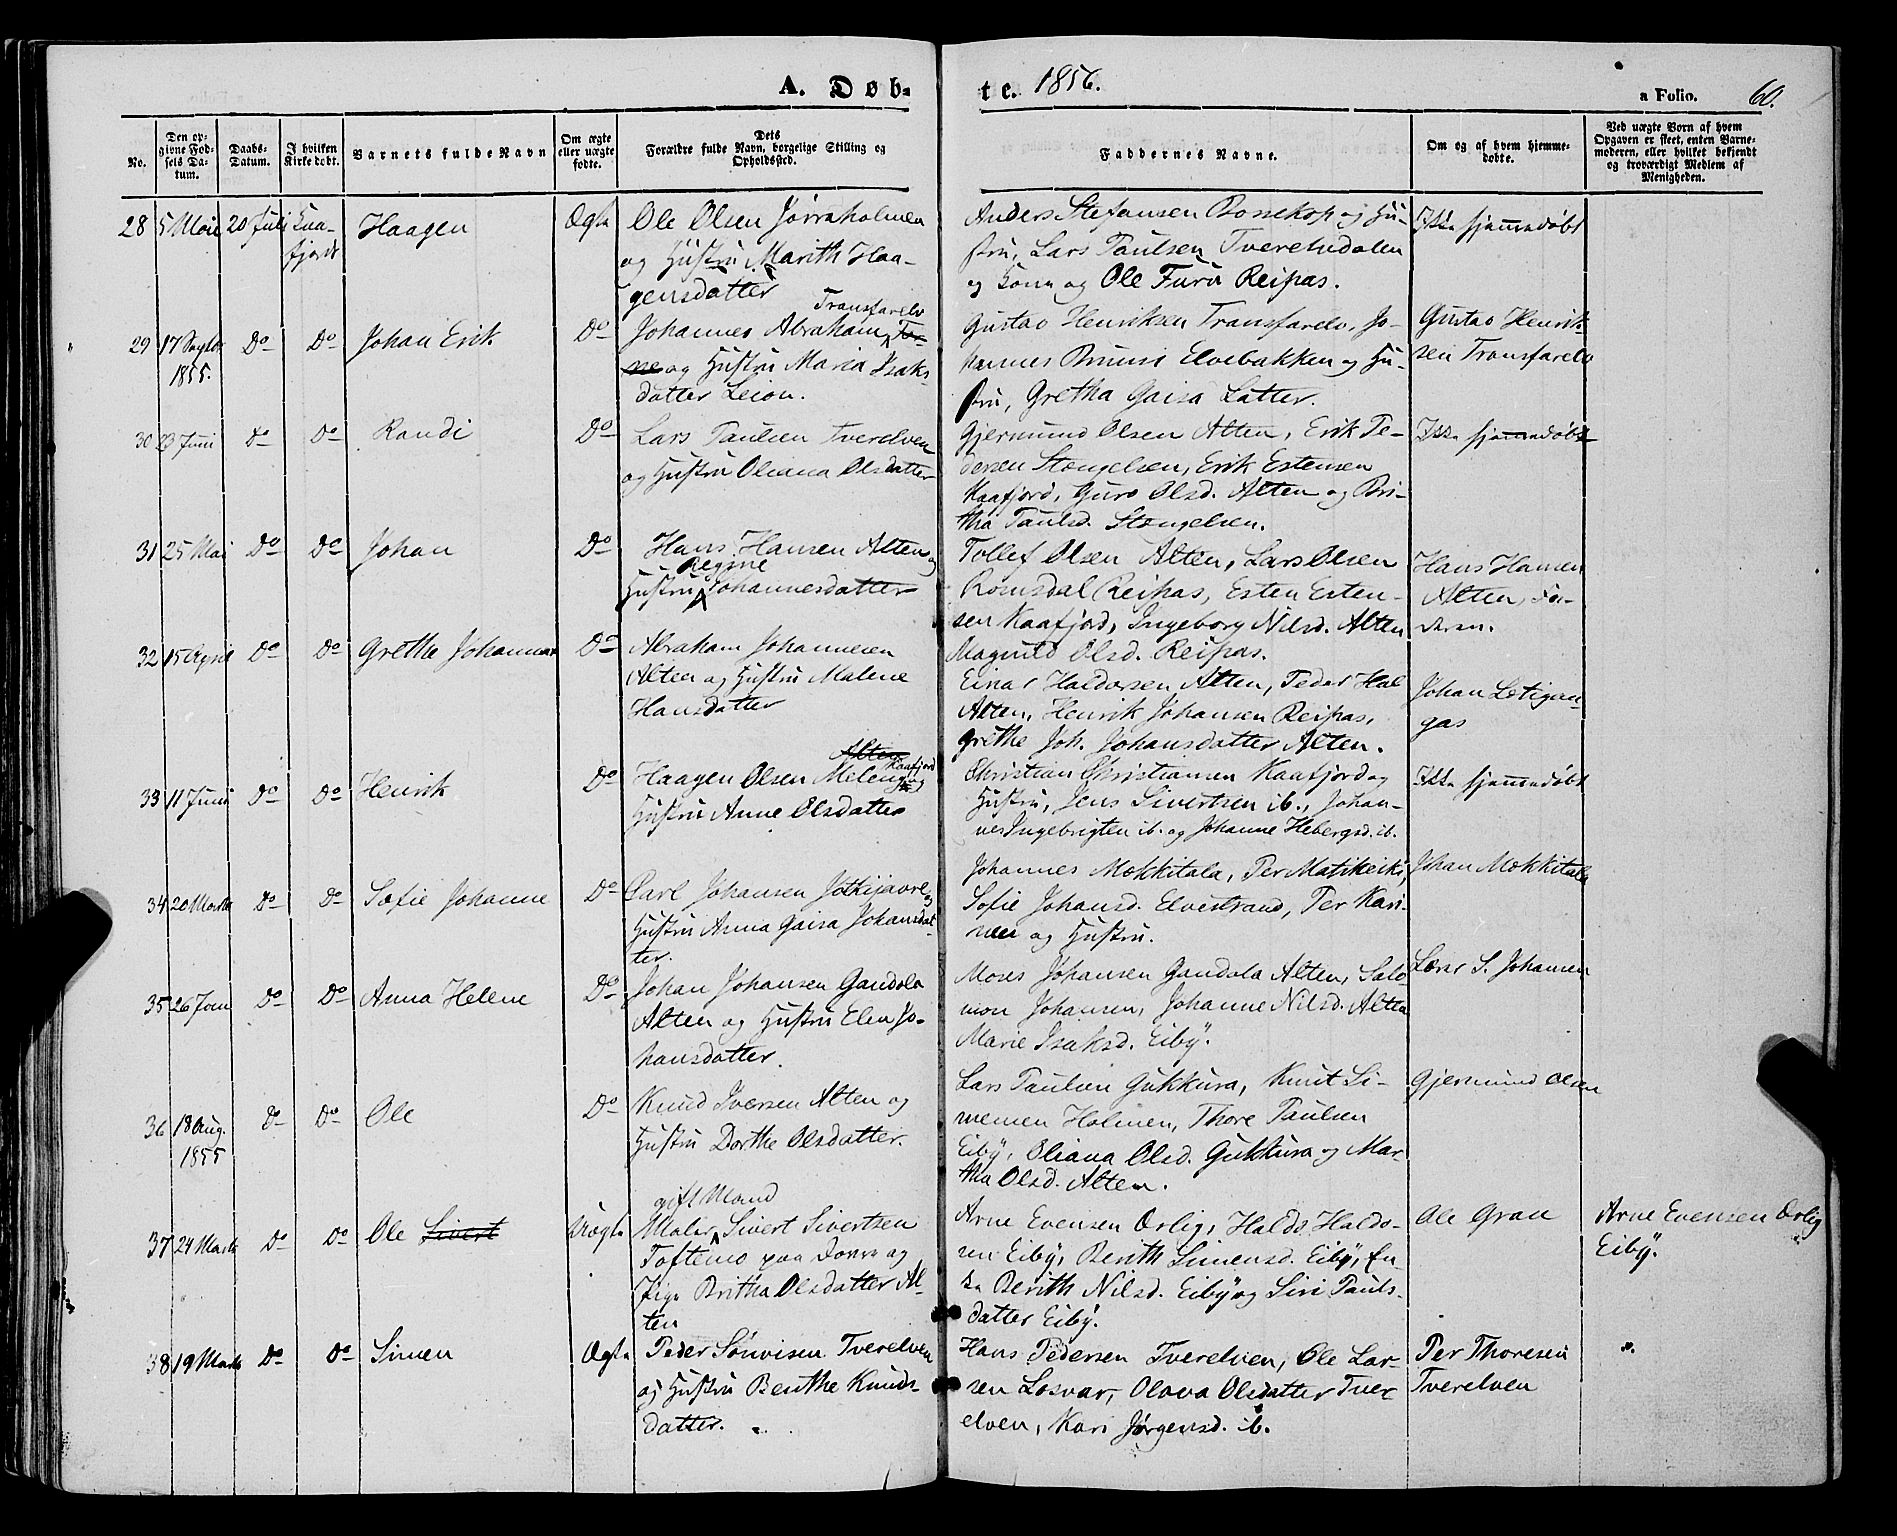 A. Døb-
te. 1856.
a Folio. 60.
No.
Den op-
givne Fød-
sels Da-
tum.
Daabs-
Datum.
I hvilken
Kirke døbt.
Barnets fulde Navn
Om ægte
eller uægte
fødte.
Dets
Forældre fulde Navn, borgelige Stilling og
Opholdssted.
Faddernes Navne.
Om og af hvem hjemme-
døbte.
Ved uægte Børn af hvem
Opgaven er skeet, enten Barne-
moderen, eller hvilket bekjendt
og troværdigt Medlem af
Menigheden.
28 5 Mai 20 Juli Kaa-
fjord
Haagen
Ægte
Ole Olsen Jørraholmen
og Hustru Marith Haa-
gensdatter
Anders Stefansen Bossekop og Hu-
stru, Lars Paulsen Tverelvdalen
og Kone og Ole Furu Reipas.
Ikke hjemmedøbt
29 17 Septbr
1855.
Do Do
Johan Erik
Do
Transfarelv
Johannes Abraham
og Hustru Maria Isaks-
datter Leion.
Gustav Henriksen Transfarelv, Jo-
hannes Bruun Elvebakken og Hu-
stru, Gretha Gaisa Latter.
Gustav Henrik-
sen Transfarelv
30 23 Juni Do Do
Randi
Do
Lars Paulsen Tverelven
og Hustru Oliana Olsdatter
Gjermund Olsen Alten, Erik Pe-
dersen Stengelsen, Erik Estensen
Kaafjord, Guro Olsd. Alten og Bri-
tha Paulsd. Stengelsen.
Ikke hjemmedøbt
31 25 Mai Do Do
Johan
Do
Hans Hansen Alten og
Regine
Hustru Johannesdatter
Tollef Olsen Alten, Lars Olsen
Romsdal Reipas, Esten Esten-
sen Kaafjord, Ingeborg Nilsd. Alten
Magnild Olsd. Reipas.
Hans Hansen
Alten, Fa-
deren.
32 15 April Do Do
Grethe Johanna
Do
Abraham Johannesen
Alten og Hustru Malene
Hansdatter
Einar Haldorsen Alten, Peder Hal
Alten, Henrik Johansen Reipas,
Grethe Joh. Johansdatter Alten.
Johan Letigan-
gas
33 11 Juni Do Do
Henrik
Do
Alten
Kaafjord
Haagen Olsen Meleng og
Hustru Anne Olsdatter
Christian Christiansen Kaafjord og
Hustru, Jens Sivertsen ib., Johan-
nes Ingebrigten ib. og Johanne Hebergsd. ib.
Ikke hjemmedøbt
34 20 Marts Do Do
Sofie Johanne
Do
Carl Johansen Jotkijavre og
Hustru Anna Gaisa Johansdat-
ter.
Johannes Mokkitala, Per Matikeiki,
Sofie Johansd. Elvestrand, Per Kari-
nen og Hustru.
Johan Mokkitala
35 26 Jan Do Do
Anna Helene
Do
Johan Johansen Gandola
Alten og Hustru Elen Jo-
hansdatter.
Moses Johansen Gandola Alten, Salo-
mon Johansen, Johanne Nilsd. Alten
Marie Isaksd. Eiby.
Lærer S. Johansen
36 18 Aug.
1855
Do Do
Ole
Do
Knud Iversen Alten og
Hustru Dorthe Olsdatter.
Lars Paulsen Gukkura, Knut Si-
mensen Holmen, Thore Paulsen
Eiby, Oliana Olsd. Gukkura og Mar-
tha Olsd. Alten.
Gjermund Olsen
37 24 Marts Do Do
Ole Sivert
Uægte
gift Mand
Maler Sivert Sivertsen
Toftemo paa Dovre og
Pige Britha Olsdatter Al-
ten
Arne Evensen Ørlig, Halds Haldo-
sen Eiby, Berith Simensd. Eiby, En-
ke Berith Nilsd. Eiby og Siri Pauls-
datter Eiby.
Ole Gran
Arne Evensen Ørlig
Eiby.
38 19 Marts Do Do
Simen
Ægte
Peder Sønvisen Tverelven
og Hustru Benthe Knuds-
datter.
Hans Pedersen Tverelven, Ole Lar-
sen Losvar, Olava Olsdatter Tver-
elven, Kari Jørgensd. ib.
Per Thoresen
Tverelven